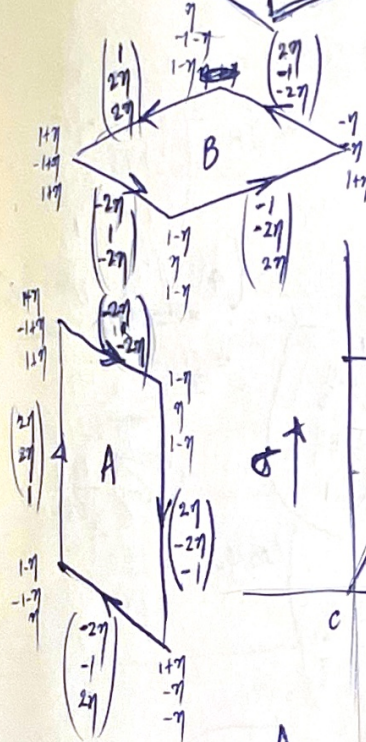 η
-1-η
1-η
1
2η
2η
2η
-1
-2η
1+η
-1+η
1+η
B
-η
-η
1+η
-2η
1
-2η
1-η
η
1-η
-1
-2η
2η
1+η
-1+η
1+η
-2η
1
-2η
1-η
η
1-η
2η
2η
1
A
σ
2η
-2η
-1
1-η
-1-η
η
-2η
-1
2η
1+η
-η
-η
C